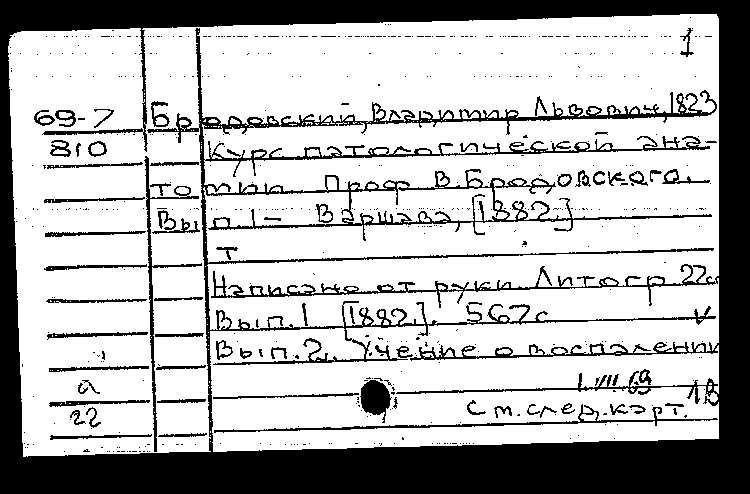 1
69-7 Бродовский, Владимир Львович, 1823
810 Курс патологической ана-
томии Проф В. Бродовского.
Вып. 1- Варшава, [1882.]
т
Написано от руки. Литогр 22с
Вып. 1 [1882.]. 567с v
Вып. 2. Учение о воспалении
а 1.VII.69
22 См. след. карт. 1В